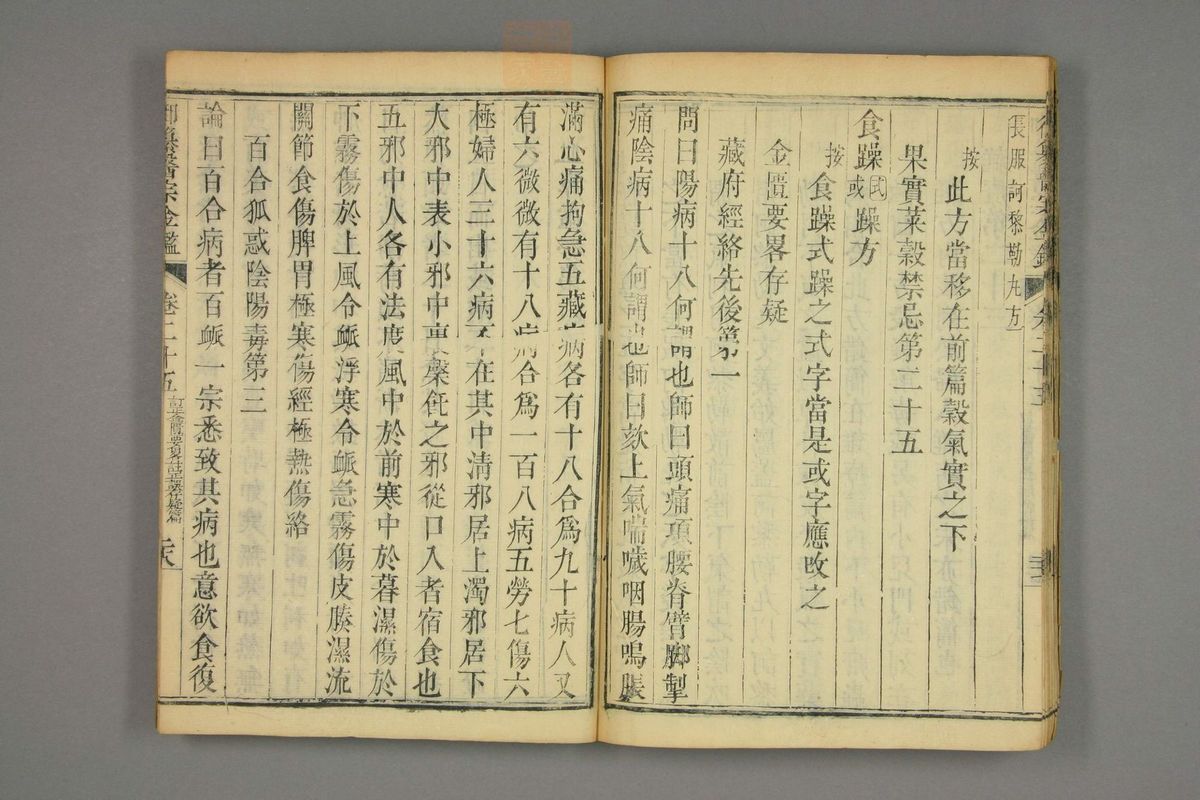 長服訶黎勒丸方
按此方當移在前篇穀氣實之下
果實菜穀禁忌第二十五
食躁式或躁方
按食躁式躁之式字當是或字應改之
金匱要畧存疑
藏府經絡先後第一
問曰陽病十八何謂也師曰頭痛項腰脊臂脚掣
痛陰病十八何謂也師曰欬上氣喘噦咽腸鳴脹
滿心痛拘急五藏病各有十八合爲九十病人又
有六微微有十八病合爲一百八病五勞七傷六
極婦人三十六病不在其中清邪居上濁邪居下
大邪中表小邪中裏䅽飪之邪從口入者宿食也
五邪中人各有法度風中於前寒中於暮濕傷於
下霧傷於上風令衇浮寒令衇急霧傷皮腠濕流
關節食傷脾胃極寒傷經極熱傷絡
百合狐惑陰陽毒第三
論曰百合病者百衇一宗悉致其病也意欲食復
御纂醫宗金鑑 卷二十五 訂正金匱要畧註正誤存疑篇